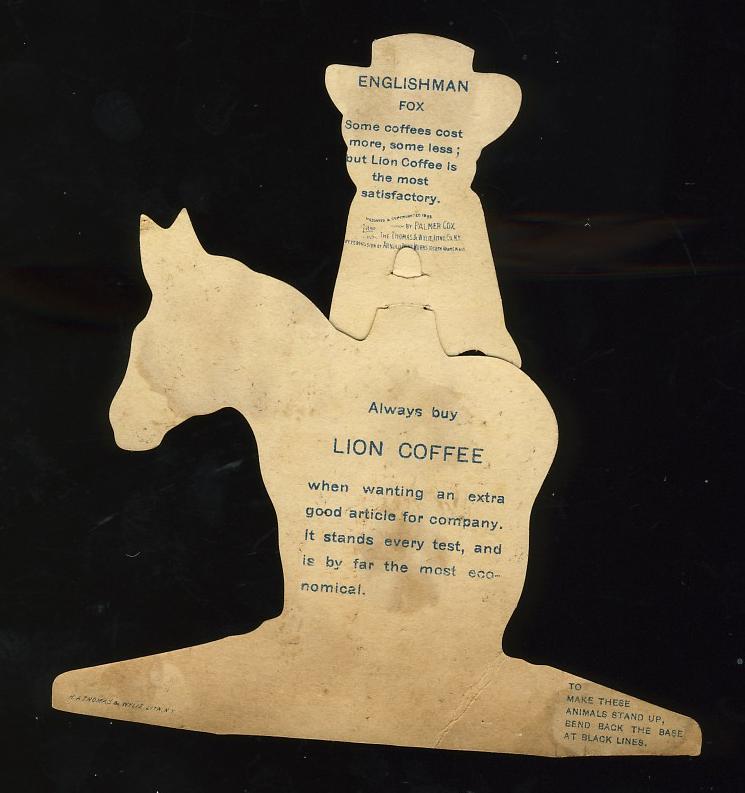 ENGLISHMAN
FOX
Some coffees cost
more, some less;
but Lion Coffee is
the most
satisfactory.
BY PALMER COX
THE THOMAS & WYLIE LITHO. CO. N.Y.
Always buy
LION COFFEE
when wanting an extra
good article for company.
It stands every test, and
is by far the most eco-
nomical.
H.A. THOMAS & WYLIE LITH. N.Y.
TO
MAKE THESE
ANIMALS STAND UP,
BEND BACK THE BASE
AT BLACK LINES.